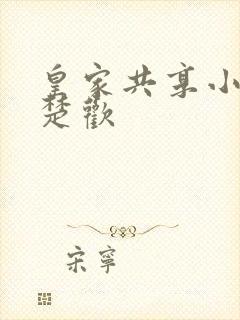 皇家共享小
楚歡
宋寧